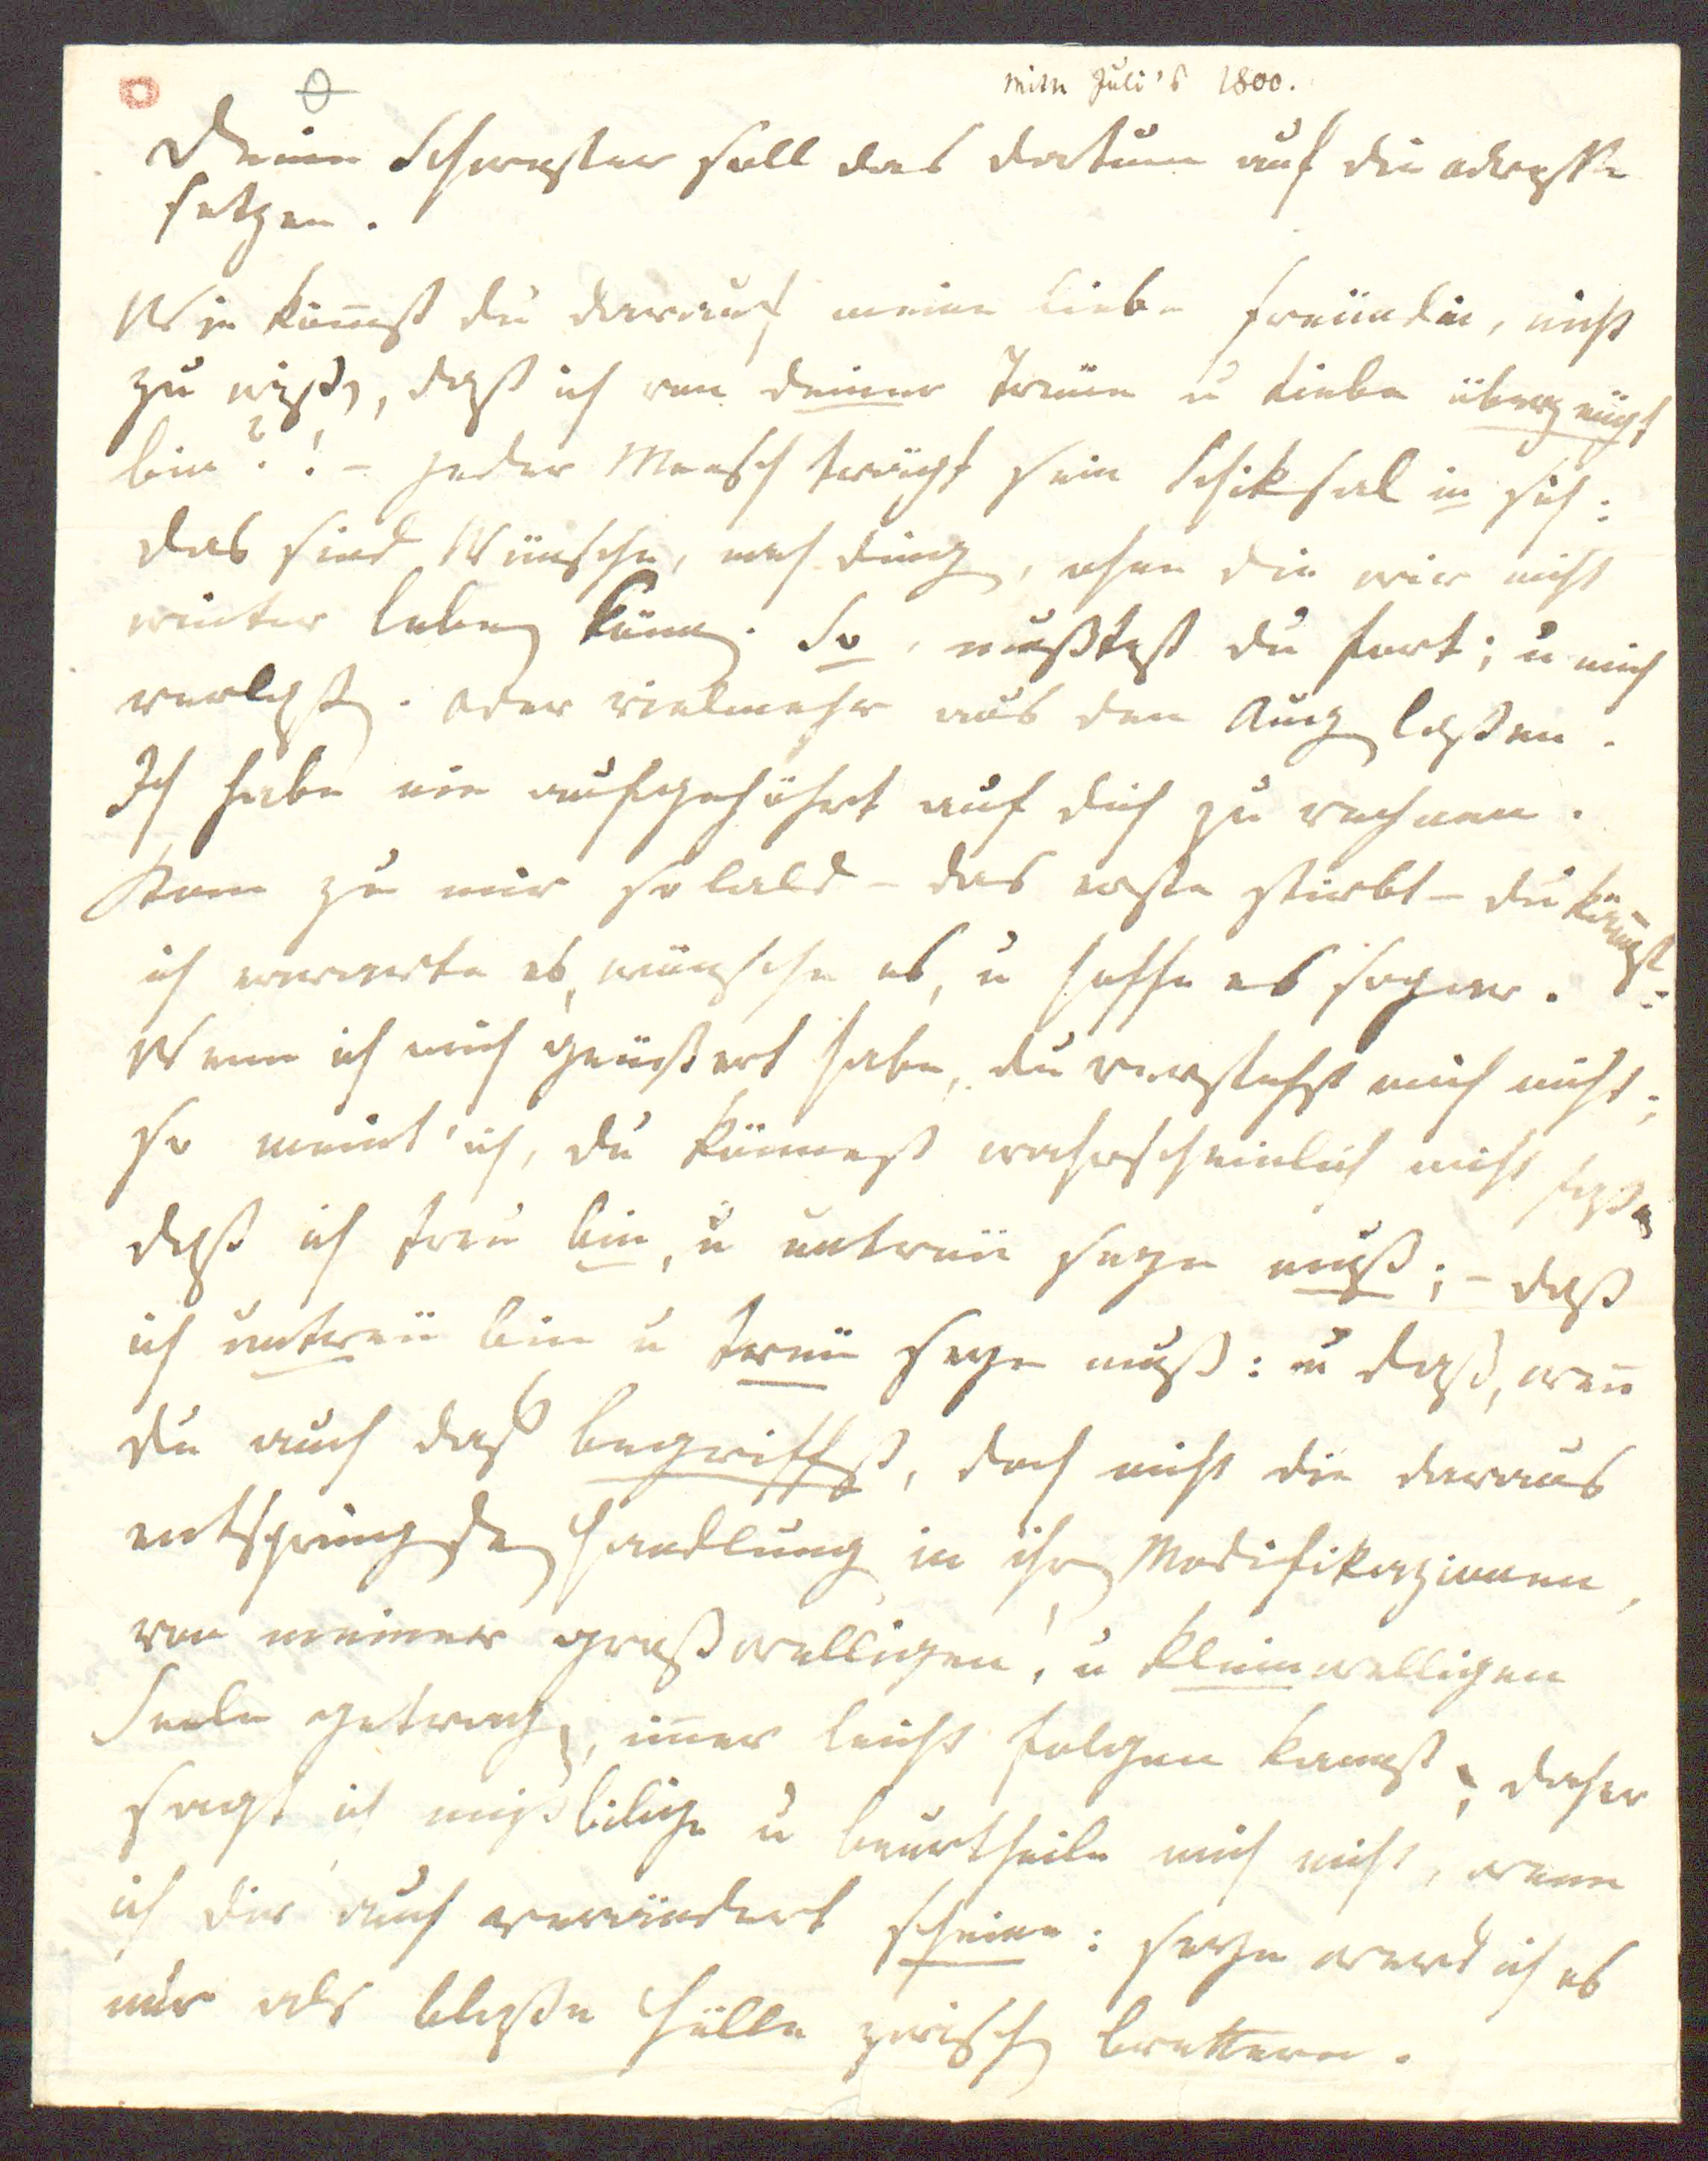 Mitte Juli's 1800.
Deine Schwester soll das datum auf die adreße
setzen.
Wie kömst du darauf meine liebe freündin, nicht
zu wißen, daß ich von deiner Treüe u Liebe überzeügt
bin?! – jeder Mensch trägt sein Schiksal in sich:
das sind Wünsche, nach dingen, ohne die wir nicht
weiter leben könen. So, mußtest du fort; u mich
verlaßen. oder vielmehr aus den Augen laßen.
Ich habe nie aufgehöhrt auf dich zu rechnen.
Kom zu mir sobald – das erste stirbt – du kömst
ich erwarte es, wünsche es, u hoffe es sogar.
Wenn ich mich geäüßert habe, du verstehst mich nicht;
so meint' ich, du könnest wahrscheinlich nicht faßen
daß ich treu bin, u untreü seyn muß; – daß
ich untreü bin u treü seyn muß: u daß, wen
du auch daß begriffst, doch nicht die daraus
entspringenden Handlungen in ihren Modifikazionen,
von meiner großwelligen, u kleinwelligen
Seele getragen, imer leicht folgen kannst; daher
sagt ich mißbilige u beurtheile mich nicht, wenn
ich dir auch verändert scheine: seyn werd' ich es
nur als bloße Hülle zwischen brettern.